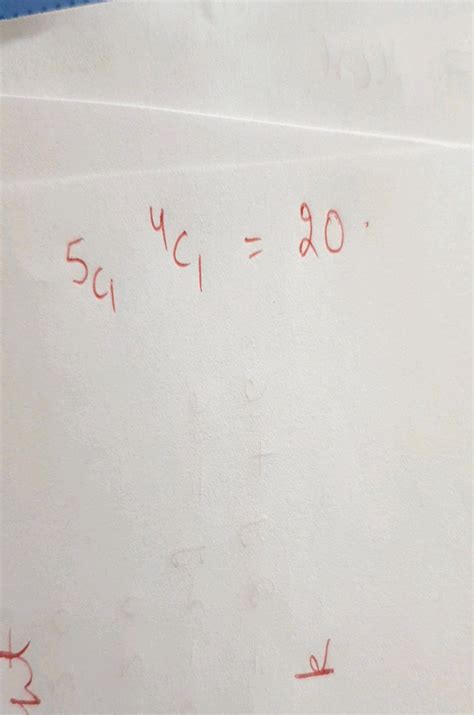 ⁵C₁ ⁴C₁ = 20.